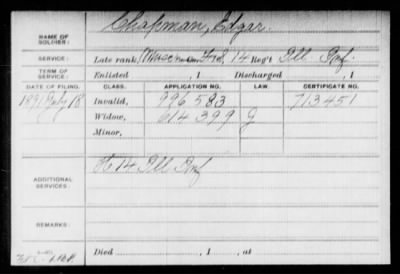 NAME OF SOLDIER: Chapman, Edgar.
SERVICE: Late rank, F&S, 14 Reg't Ill Inf.
TERM OF SERVICE: Enlisted , 1 Discharged , 1
DATE OF FILING. CLASS. APPLICATION NO. LAW. CERTIFICATE NO.
1891 July 18 Invalid, 996583 713451
Widow, 614399 G
Minor,
ADDITIONAL SERVICES: 14 Ill Inf
REMARKS:
Died , 1 , at